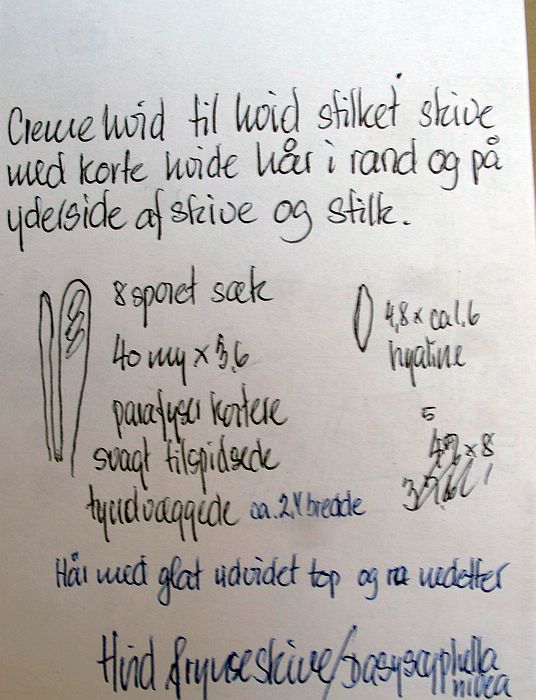 Cremehvid til hvid stilket skive
med korte hvide hår i rand og på
yderside af skive og stilk.
8 sporet sæk
40 my x 3,6
parafyser kortere
svagt tilspidsede
tyndvæggede ca. 2,4 bredde
4,8 x ca 1.6
hyaline
5
x 8
Hår med glat udvidet top og ru nedefter
Hvid frynseskive/Dasyscyphella
nivea